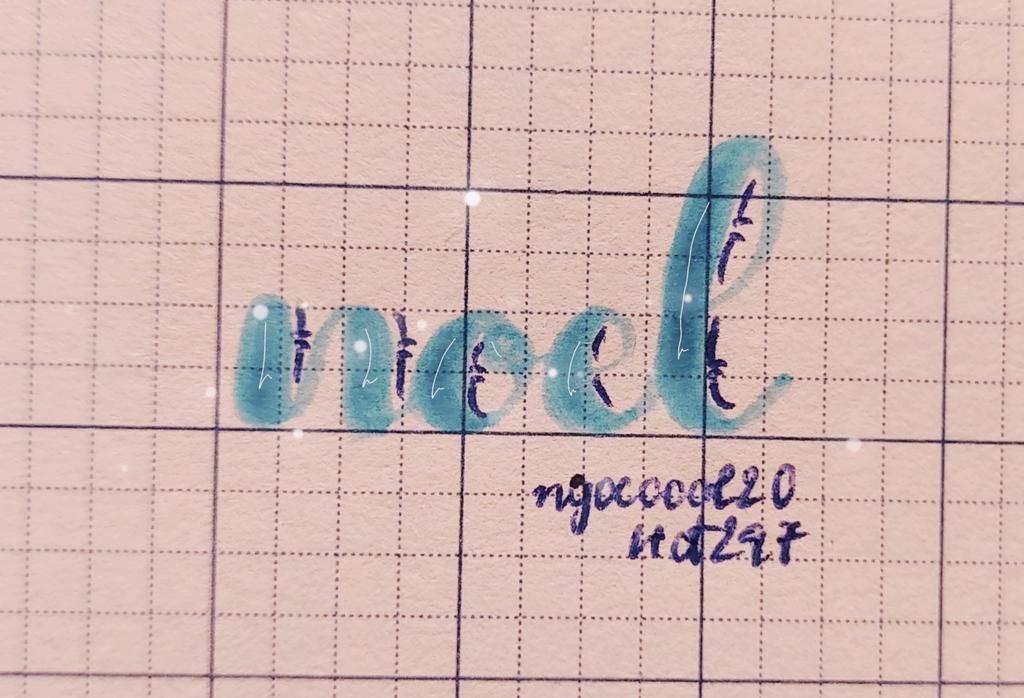 noel
ngocoool20
Hd297